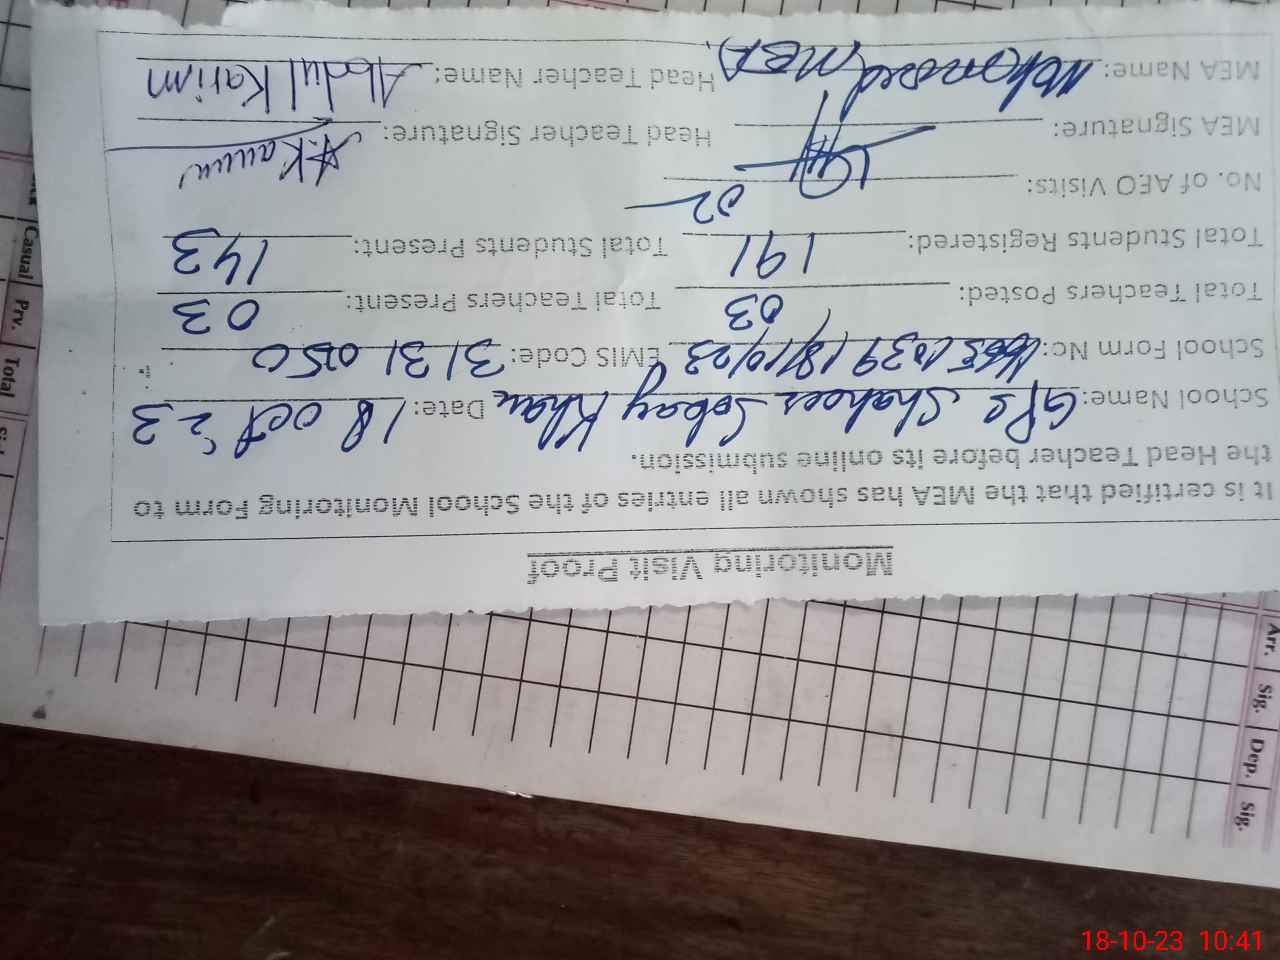 Monitoring Visit Proof
It is certified that the MEA has shown all entries of the School Monitoring Form to
the Head Teacher before its online submission.
School Name: GPS Shaheer Sobay Khan Date: 18 Oct 23
School Form No: 18/10/23 EMIS Code: 31310150
Total Teachers Posted: 03 Total Teachers Present: 03
Total Students Registered: 191 Total Students Present: 143
No. of AEO Visits: 02
MEA Signature: Head Teacher Signature: A.Karim
MEA Name: (MEA) Head Teacher Name: Abdul Karim
Casual Prv. Total
Arr. Sig. Dep. Sig.
18-10-23 10:41